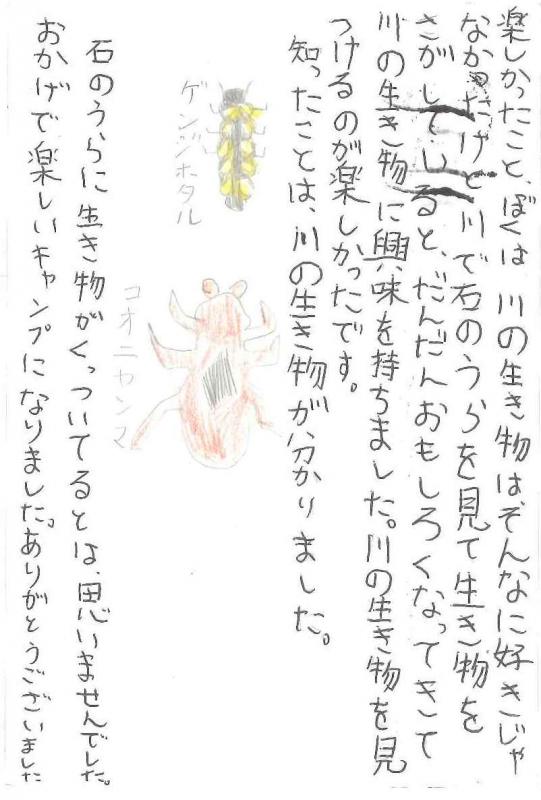 楽しかったこと、ぼくは川の生き物はそんなに好きじゃ
なかっただけど川で石のうらを見て生き物を
さがしていると、だんだんおもしろくなってきて
川の生き物に興味を持ちました。川の生き物を見
つけるのが楽しかったです。
知ったことは、川の生き物が分かりました。
ゲンジホタル
コオニヤンマ
石のうらに生き物がくっついてるとは、思いませんでした。
おかげで楽しいキャンプになりました。ありがとうございました